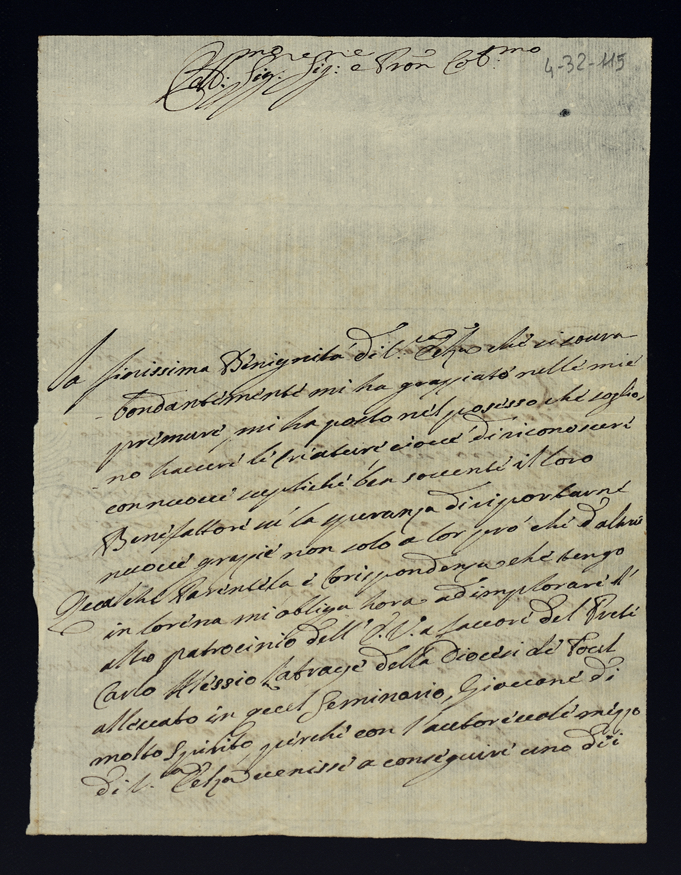 Ecc:mo Sig:re Sig:re e Pron Col:mo
4-32-115
La finissima Benignità di V. Ecza che si sovra
bondantemente mi ha graziato nelle mie
premure, mi ha posto nel posesso che soglio,
no havere le Creature cioè di riconoscere
con nuove supliche ben sovente il loro
Benefattore sù la speranza di riportarne
nuove grazie non solo a lor prò che d'altri
Qualche Parentela e Corispondenza che tengo
in Lorena mi obliga hora ad implorare l'
alto patrocinio dell' E. V. a favore del Prete
Carlo Alessio Lafrage della Diocesi di Toul
allevato in quel Seminario, Giovane di
molto Spirito, perche con l'autorevole mezzo
di V. Ecza venisse a conseguire uno dei